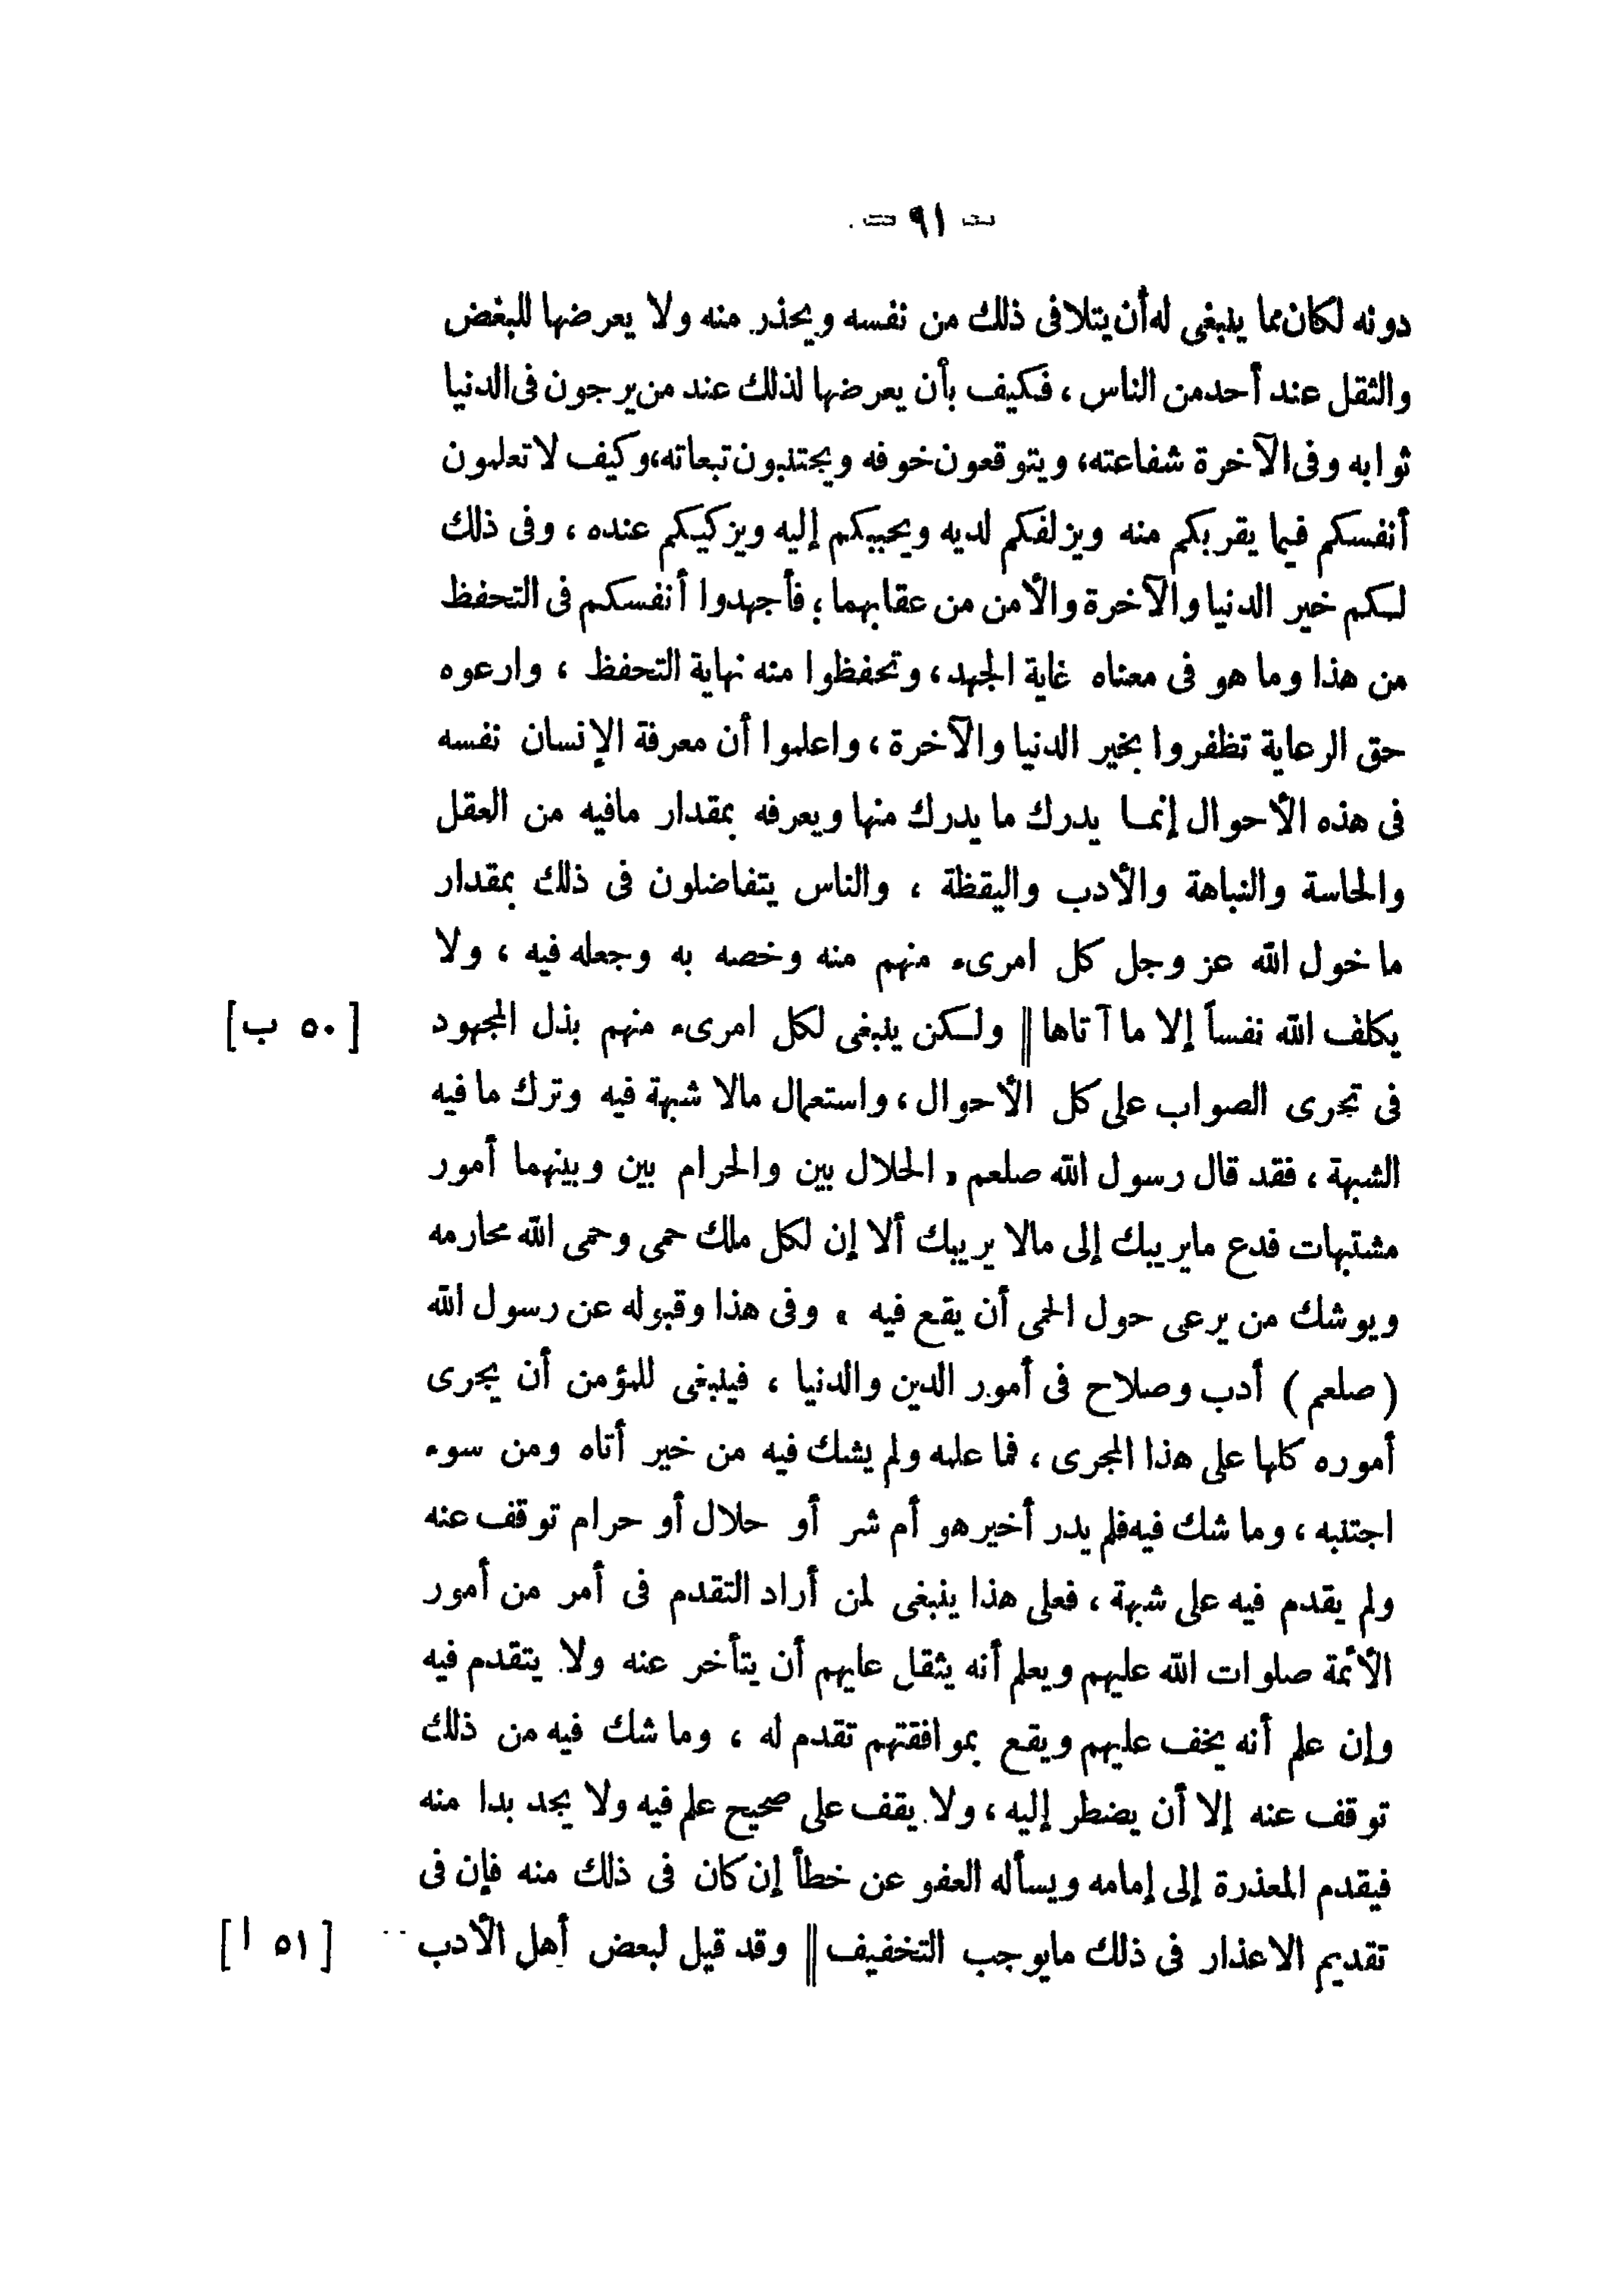 - ٩١ -
دونه لكان مما ينبغى له أن يتلافى ذلك من نفسه ويحذر منه ولا يعرضها للبغض
والثقل عند أحد من الناس ، فكيف بأن يعرضها لذلك عند من يرجون فى الدنيا
ثوابه وفى الآخرة شفاعته، ويتوقعون خوفه ويجتنبون تبعاته، وكيف لا تعلمون
أنفسكم فيما يقربكم منه ويزلفكم لديه ويحببكم إليه ويزكيكم عنده ، وفى ذلك
لكم خير الدنيا والآخرة والأمن من عقابهما ؛ فأجهدوا أنفسكم فى التحفظ
من هذا وما هو فى معناه غاية الجهد ، وتحفظوا منه نهاية التحفظ ، وارعوه
حق الرعاية تظفروا بخير الدنيا والآخرة ، واعلموا أن معرفة الإنسان نفسه
فى هذه الأحوال إنما يدرك ما يدرك منها ويعرفه بمقدار مافيه من العقل
والحاسة والنباهة والأدب واليقظة ، والناس يتفاضلون فى ذلك بمقدار
ما خول الله عز وجل كل امرىء منهم منه وخصه به وجعله فيه ، ولا
يكلف الله نفساً إلا ما آتاها || ولكن ينبغى لكل امرىء منهم بذل المجهود [ ٥٠ ب ]
فى تجرى الصواب على كل الأحوال ، واستعمال مالا شبهة فيه وترك ما فيه
الشبهة ، فقد قال رسول الله صلعم « الحلال بين والحرام بين وبينهما أمور
مشتبهات فدع مايريبك إلى مالا يريبك ألا إن لكل ملك حمى وحمى الله محارمه
ويوشك من يرعى حول الحمى أن يقع فيه » وفى هذا وقبوله عن رسول الله
( صلعم ) أدب وصلاح فى أمور الدين والدنيا ، فينبغى للمؤمن أن يجرى
أموره كلها على هذا المجرى ، فما علمه ولم يشك فيه من خير أتاه ومن سوء
اجتنبه ، وما شك فيه فلم يدر أخير هو أم شر أو حلال أو حرام توقف عنه
ولم يقدم فيه على شبهة ، فعلى هذا ينبغى لمن أراد التقدم فى أمر من أمور
الأئمة صلوات الله عليهم ويعلم أنه يثقل عليهم أن يتأخر عنه ولا يتقدم فيه
وإن علم أنه يخف عليهم ويقع بموافقتهم تقدم له ، وما شك فيه من ذلك
توقف عنه إلا أن يضطر إليه ، ولا يقف على صحيح علم فيه ولا يجد بدا منه
فيقدم المعذرة إلى إمامه ويسأله العفو عن خطأ إن كان فى ذلك منه فإن فى
تقديم الاعذار فى ذلك مايوجب التخفيف || وقد قيل لبعض أهل الأدب [ ٥١ ا ]